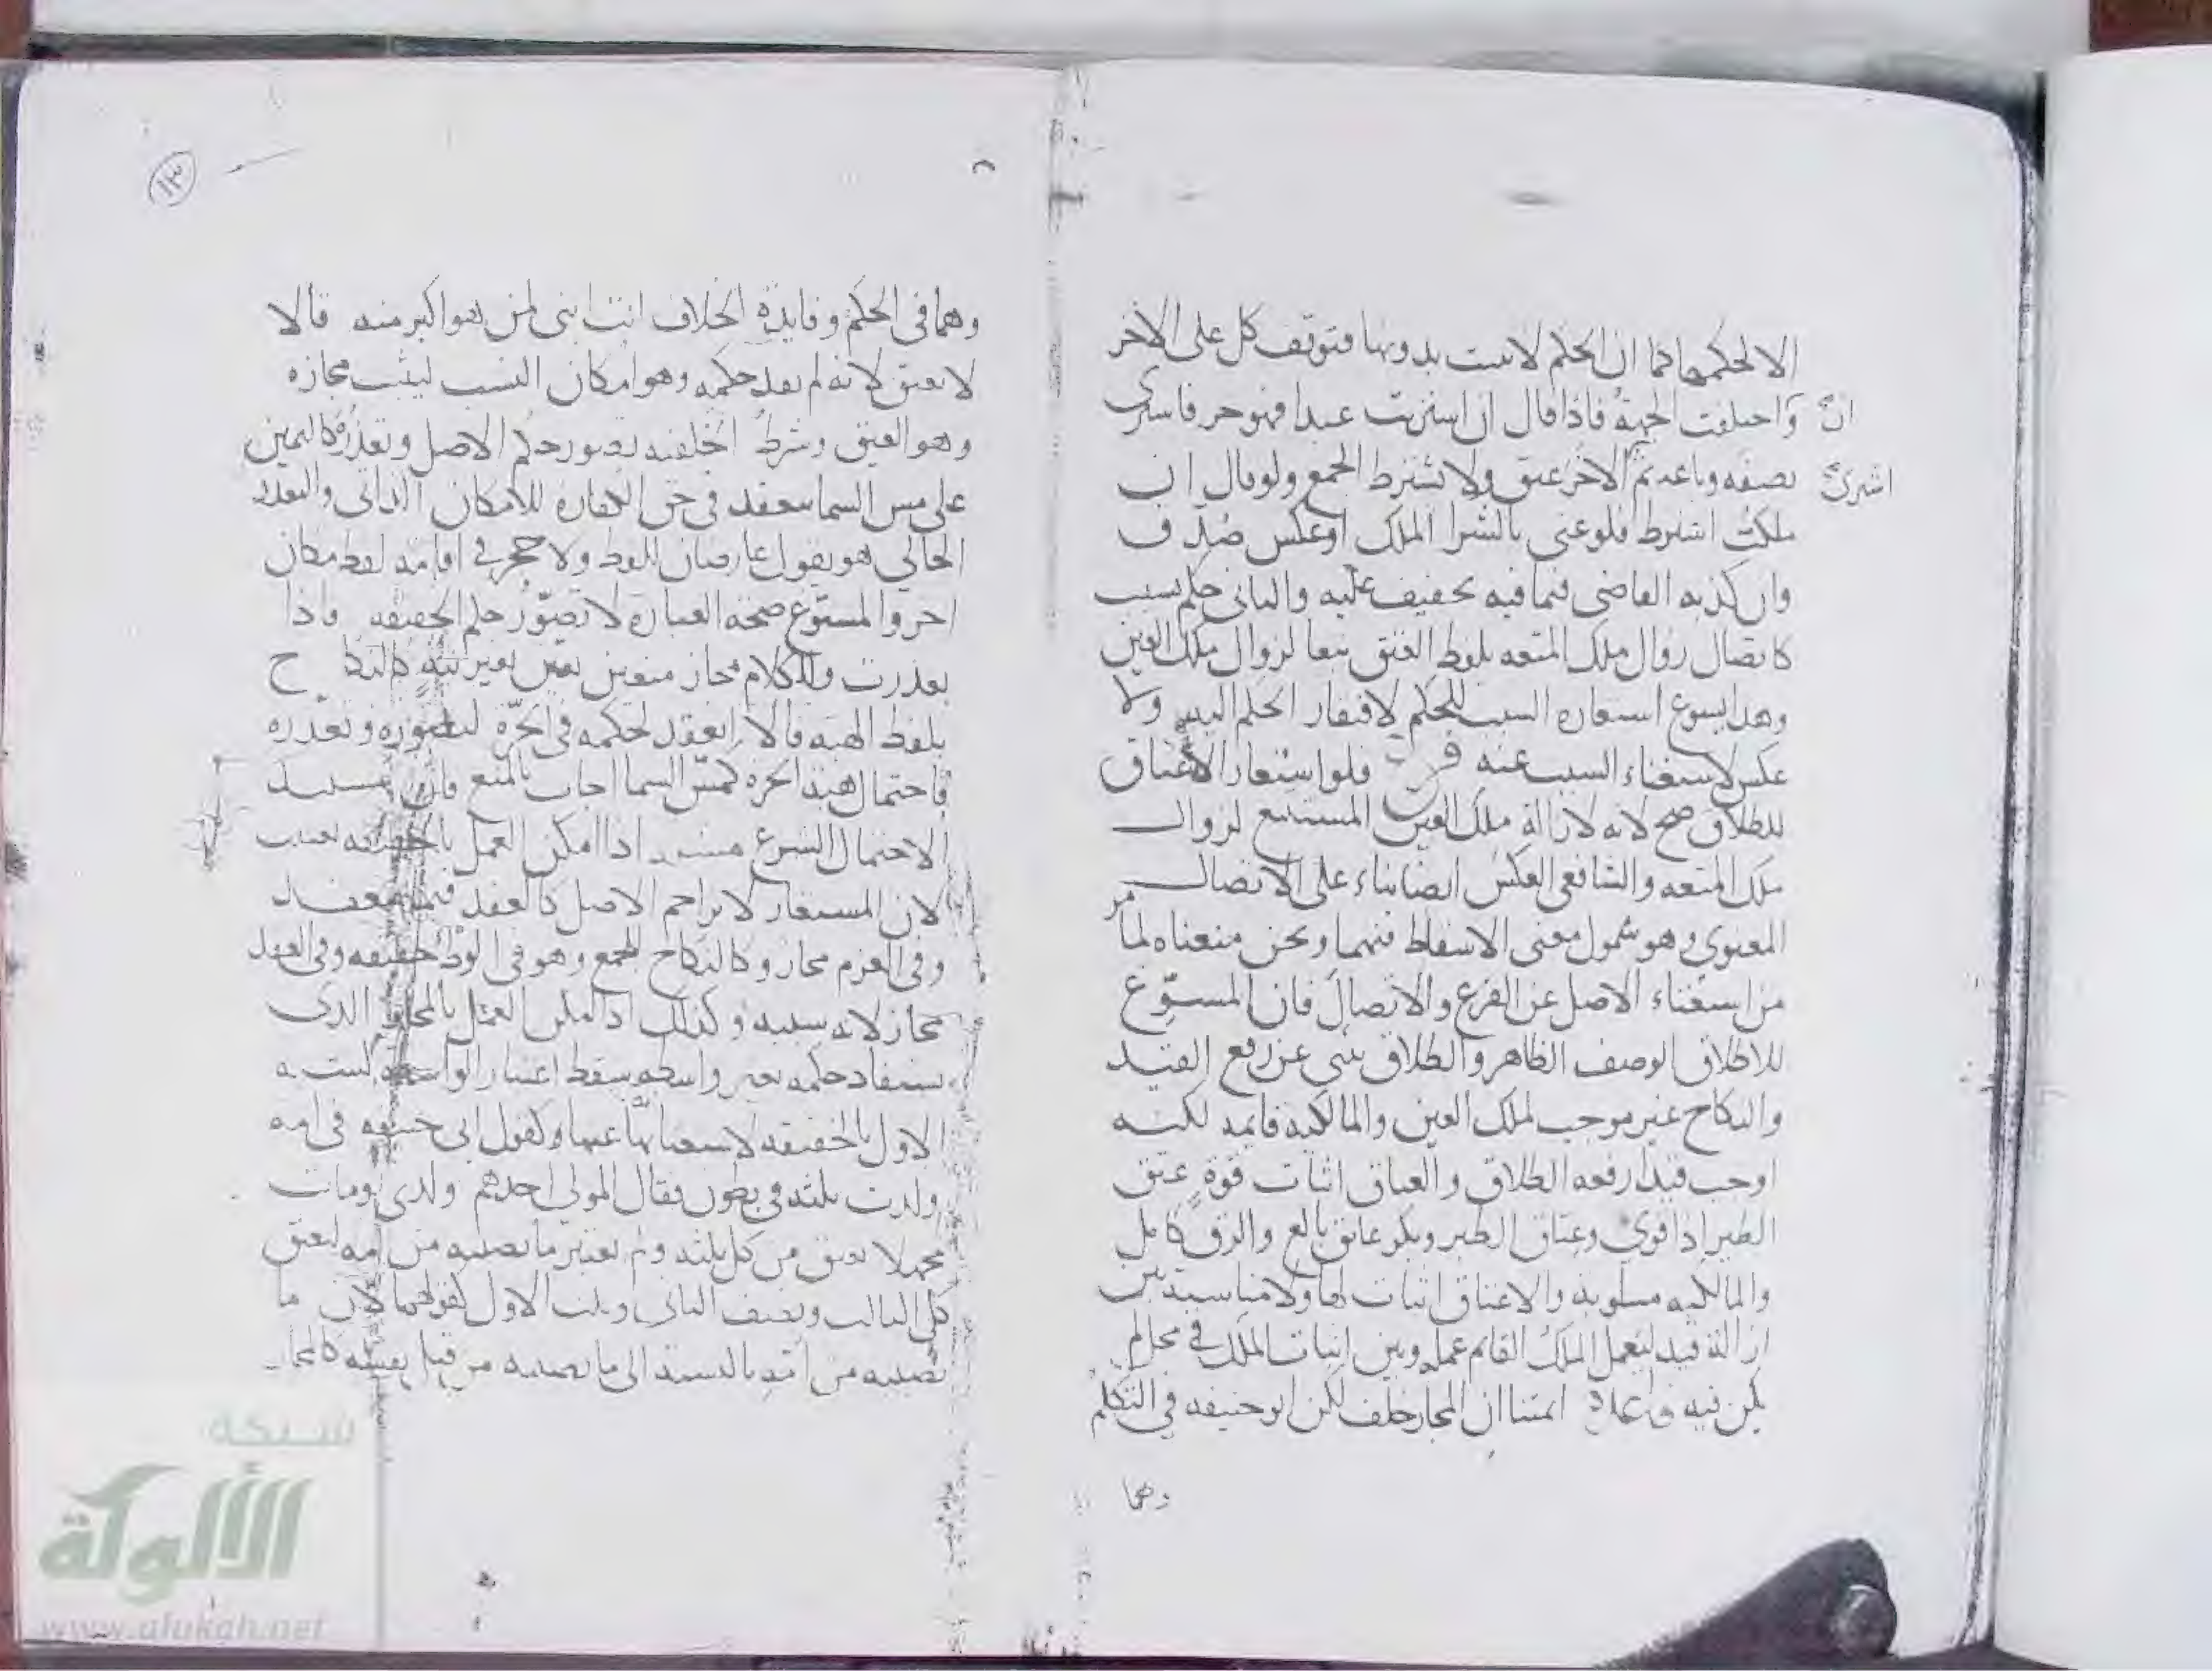 الا لحكمها كما ان الحكم لا يثبت بدونها فتوقف كل على الاخر
واختلفت الجهة فاذا قال ان اشتريت عبدا فهو حر فاشترى
ان
نصفه وباعه ثم الاخر عتق ولا يشترط الجمع ولو قال ان
اشترى
ملكت اشترط فلو عنى بالشرا الملك او عكس صدق
وان كذبه القاضي فيما فيه تخفيف عليه والثاني حكم بسبب
كاتصال زوال ملك المتعه بلفظ العتق تبعا لزوال ملك العين
وهذا يسوغ استعارة السبب للحكم لافتقار الحكم اليه ولا
عكس لاستغناء السبب عنه فلو استعار الاعتاق
للطلاق صح لانه لازالة ملك العين المستتبع لزوال
ملك المتعه والشافعي العكس ايضا بناء على الاتصال
المعنوي وهو شمول معنى الاسقاط فيهما ونحن منعناه لما مر
من استغناء الاصل عن الفرع والاتصال فان المسوغ
للاطلاق الوصف الظاهر والطلاق ينبي عن رفع القيد
والنكاح غير موجب لملك العين والمالكيه قايمه لكنه
اوجب قيدا رفعه الطلاق والعتاق اثبات قوة عتق
الطير اذا قوي وعتاق الطير وبكر عاتق بالغ والرق كامل
والمالكيه مسلوبة والاعتاق اثبات لها ولا مناسبة بين
ازالة قيد ليعمل الملك القائم عمله وبين اثبات الملك في محل لم
يكن فيه ايمتنا ان المجاز خلف لكن ابو حنيفه في التكلم
وهما
١٣
وهما في الحكم وفايدة الخلاف انت ابني لمن هو اكبر منه قالا
لا يعتق لانه لم يعقد حكمه وهو امكان النسب ليثبت مجازه
وهو العتق وشرط الخلفيه تصور حكم الاصل وتعذره كاليمين
على مس السما تنعقد في حق الكفاره للامكان الذاتي والتعذر
الحالي هو يقول عارضان للفظ ولا حجر في اقامة لفظ مكان
اخر والمسوغ صحة العبارة لا تصور حكم الحقيقه واذا
تعذرت وللكلام مجاز متعين تعين بغير نية كالنكاح
بلفظ الهبه قالا انعقد لحكمه في الحرة لتصوره وتعذره
باحتمال هبة الحره كمس السما اجاب بالمنع فان
الاحتمال الشرع اذا امكن العمل بالحقيقه تعينت
لان المستعار لا يزاحم الاصل كالعقد فيما ينعقد
وفي العزم مجاز وكالنكاح للجمع وهو في الوطئ حقيقه وفي العقد
مجاز لانه سببه وكذلك اذا امكن العمل بالمجاز الذي
يستفاد حكمه بغير واسطه سقط اعتبار الواسطه لشبه
الاول بالحقيقه لاستغنائهما عنها ولقول ابي حنيفه في امه
ولدت ثلثه في بطون فقال المولى احدهم ولدي ومات
مجهلا يعتق من كل ثلثه ولم يعتبر ما يصيبه من امه ليعتق
كل الثالث ونصف الثاني وثلث الاول كقولهما لان ما
يصيبه من امه بالنسبة الى ما يصيبه من قبل نفسه كالمجاز
شبكة
الألوكة
www.alukah.net